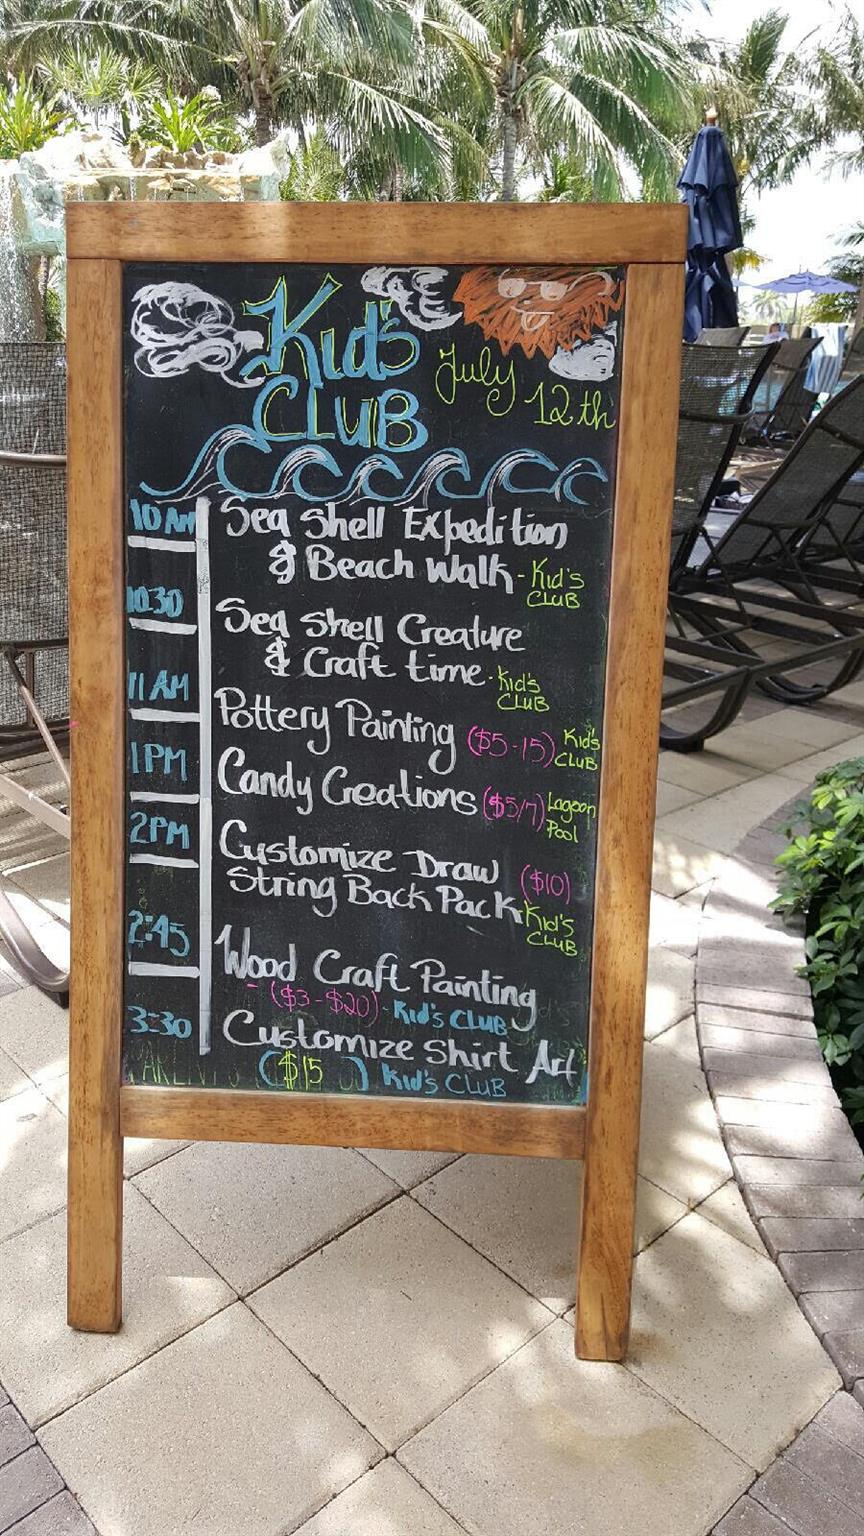 Kid's
CLUB
July
12th
10 AM Sea Shell Expedition
& Beach Walk - Kid's
CLUB
10:30 Sea Shell Creature
& Craft time - Kid's
CLUB
11 AM Pottery Painting ($5-15) Kid's
CLUB
1 PM Candy Creations ($5/7) Lagoon
Pool
2 PM Customize Draw ($10)
String Back Pack Kid's
CLUB
2:45 Wood Craft Painting
- ($3-$20) - Kid's CLUB
3:30 Customize Shirt Art
($15) Kid's CLUB